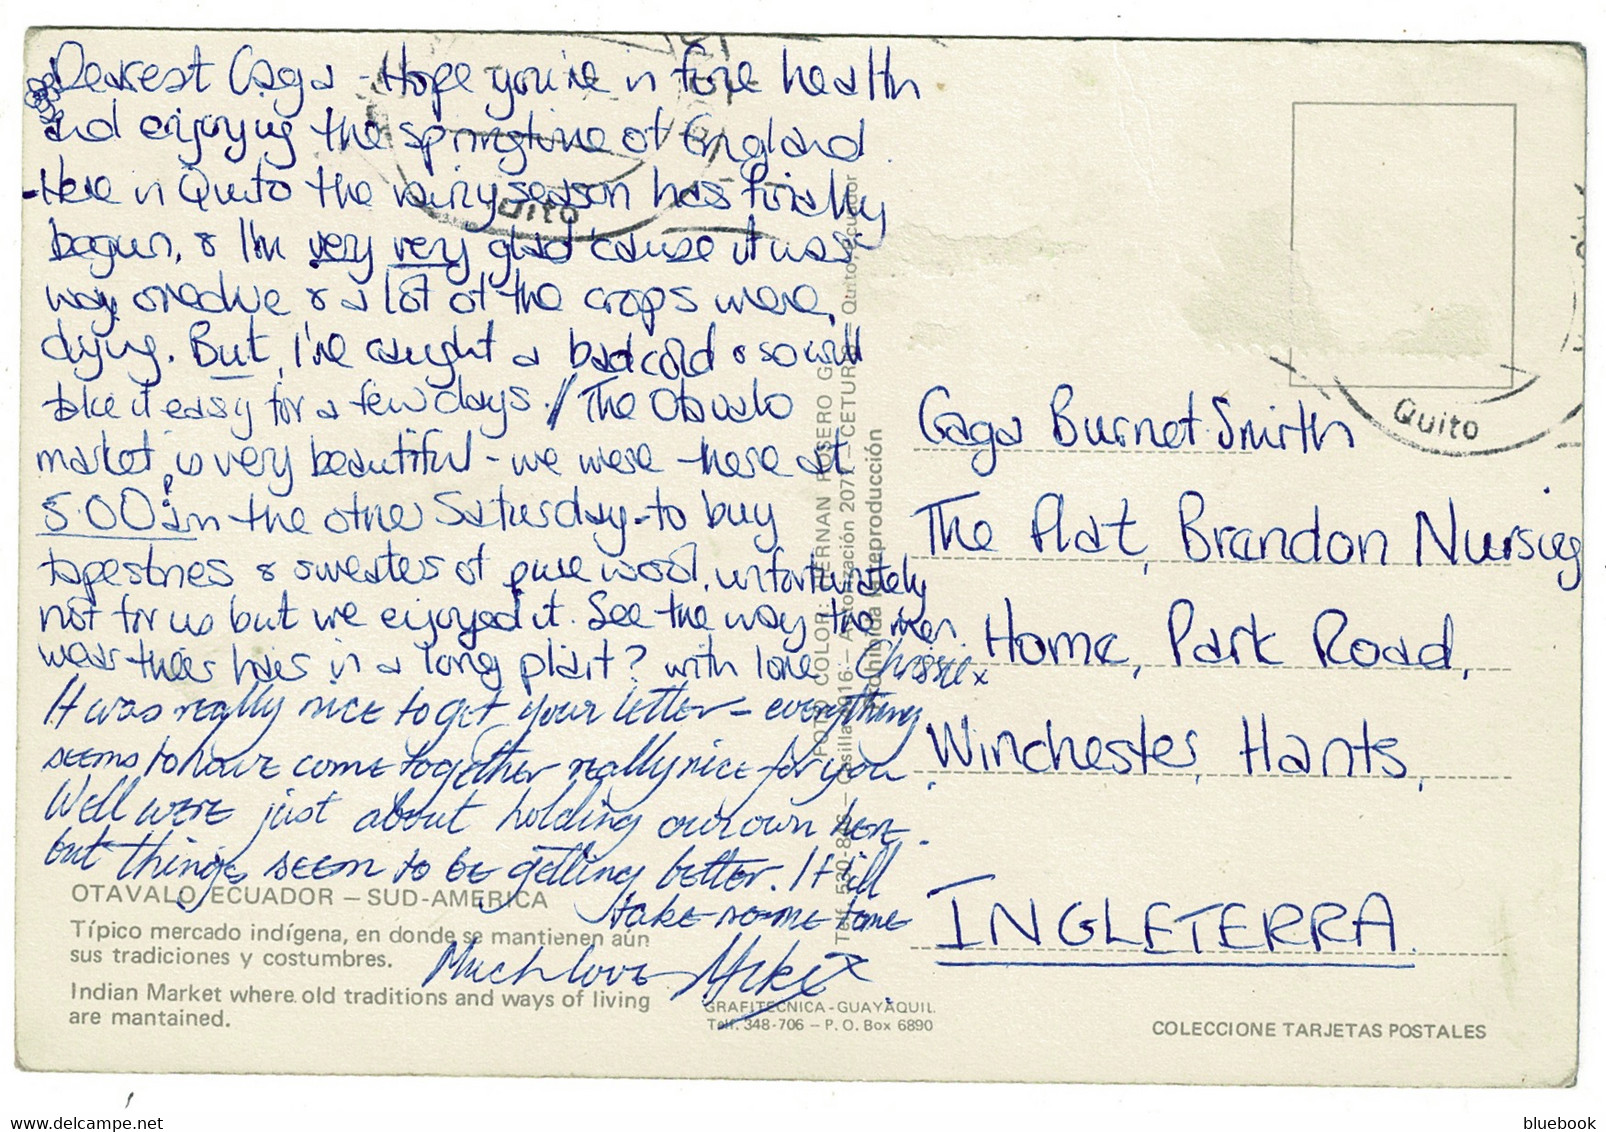 Dearest Gaga - Hope you're in fine health
and enjoying the springtime of England.
- Here in Quito the rainy season has finally
begun, & I'm very very glad 'cause it was
way overdue & a lot of the crops were
dying. But, I've caught a bad cold & so will
take it easy for a few days. // The Otavalo
market is very beautiful - we were there at
5.00am the other Saturday - to buy
tapestries & sweaters of pure wool, unfortunately
not for us but we enjoyed it. See the way the men
wear their hair in a long plait? with love Chrissie x
It was really nice to get your letter - everything
seems to have come together really nice for you.
Well were just about holding our own here.
but things seem to be getting better. It'll
take some time
Much love Mike x
OTAVALO, ECUADOR — SUD-AMERICA
Típico mercado indígena, en donde se mantienen aún
sus tradiciones y costumbres.
Indian Market where old traditions and ways of living
are mantained.
GRAFITECNICA - GUAYAQUIL
Telf. 348-706 — P. O. Box 6890
FOTO COLOR: HERNAN ROSERO G.
Telf. 530-8 — Casilla 16 — Autorización 2077 — CETUR — Quito, Ecuador
Prohibida la reproducción
Quito
Quito
Gaga Burnet-Smith
The Flat, Brandon Nursing
Home, Park Road,
Winchester, Hants,
INGLETERRA.
COLECCIONE TARJETAS POSTALES
bluebook